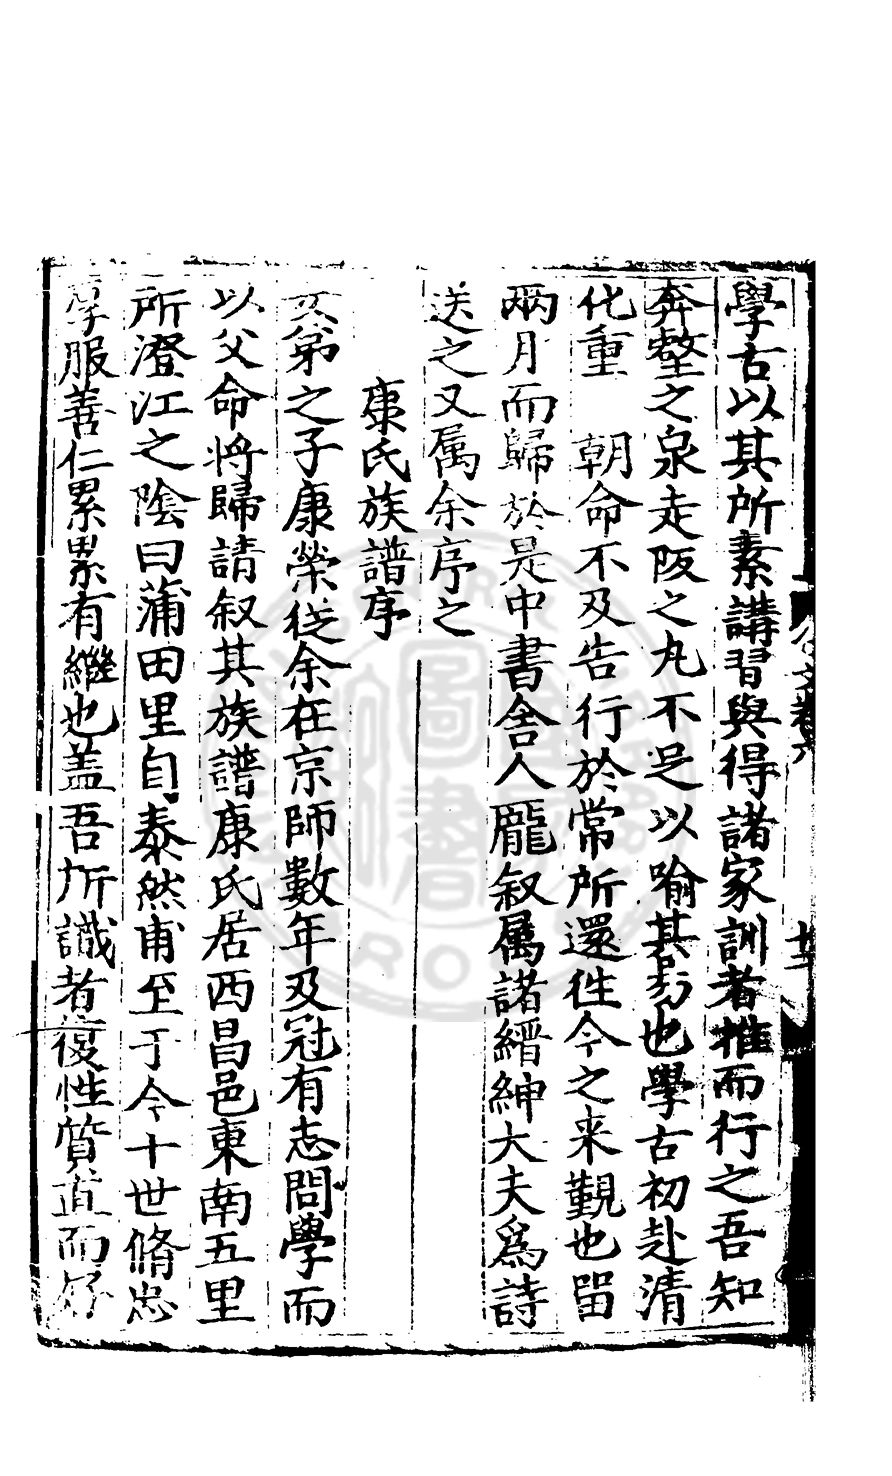 學古以其所素講習與得諸家訓者推而行之吾知
奔壑之泉走阪之丸不足以喻其易也學古初赴清
化重　朝命不及告行於常所還徃今之来觐也留
兩月而歸於是中書舍人龎叙属諸縉紳大夫爲詩
送之又属余序之
康氏族譜序
友第之子康榮從余在京師數年及冠有志問學而
以父命將歸請叙其族譜康氏居西昌邑東南五里
所澄江之陰曰蒲田里自泰然甫至于今十世脩忠
厚服善仁累累有繼也盖吾所識者復性質直而好